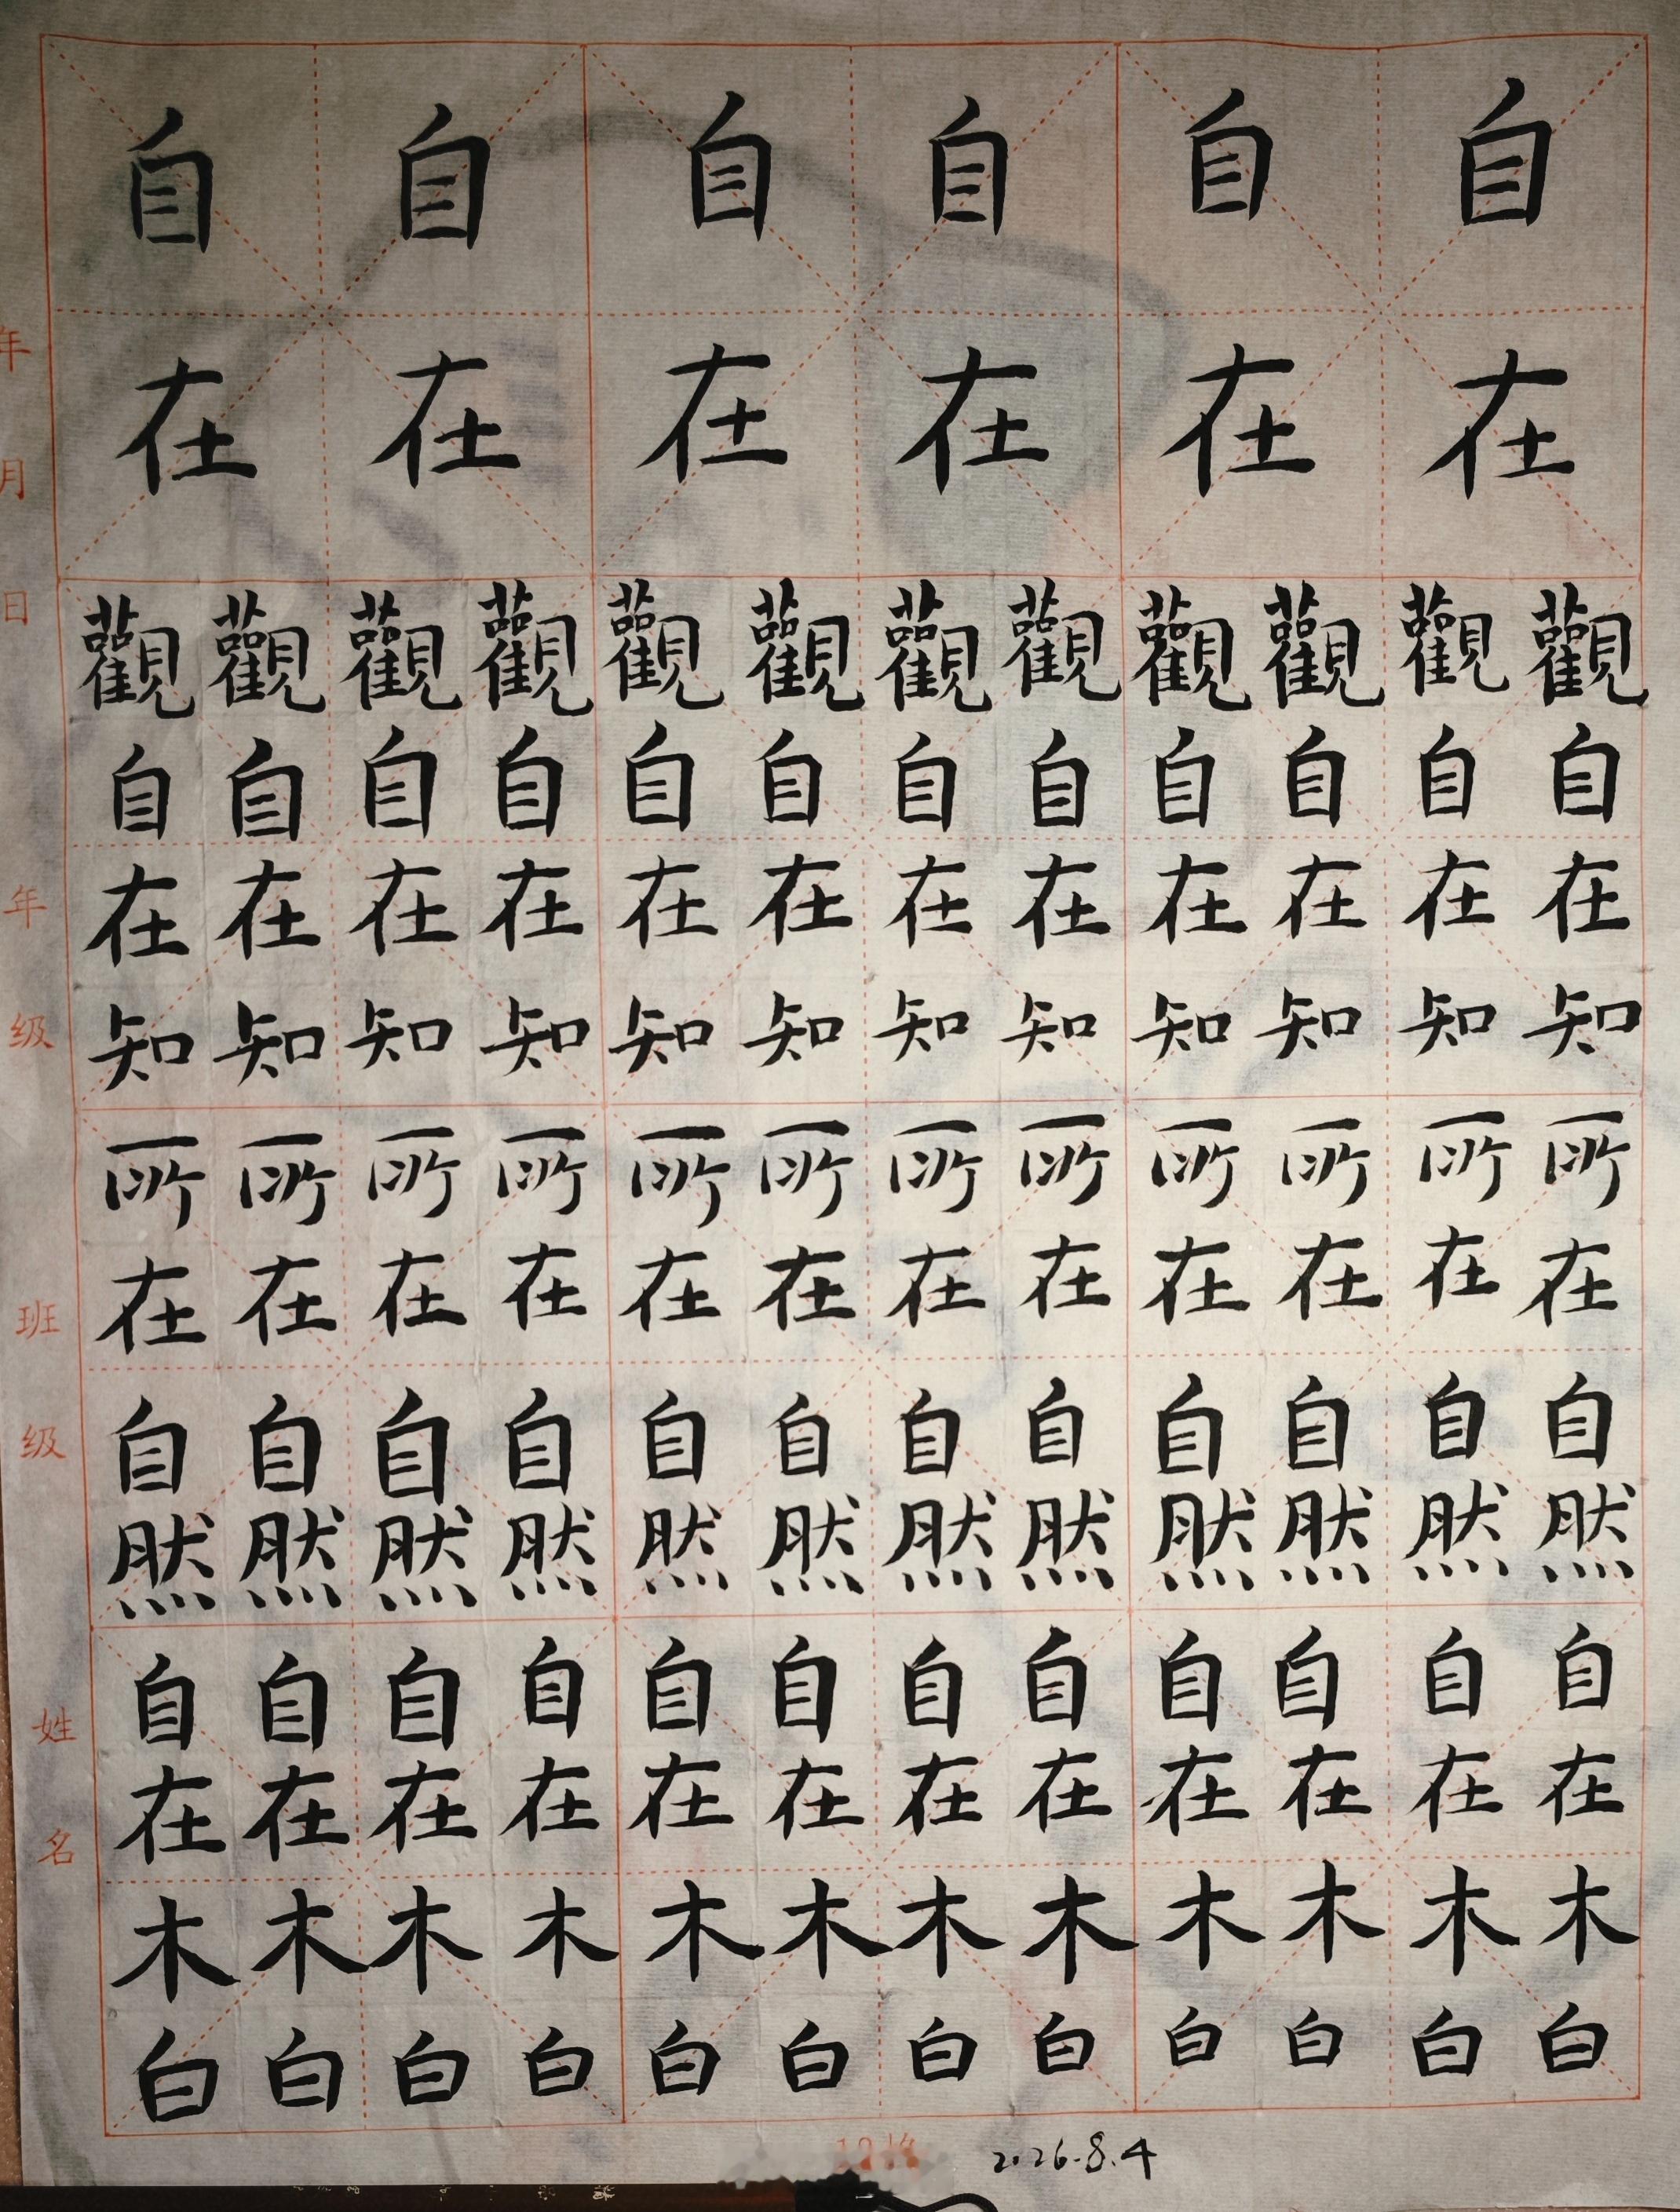 自自自自自自
在在在在在在
觀觀觀觀觀觀觀觀觀觀觀觀
自自自自自自自自自自自自
在在在在在在在在在在在在
知知知知知知知知知知知知
所所所所所所所所所所所所
在在在在在在在在在在在在
自自自自自自自自自自自自
然然然然然然然然然然然然
自自自自自自自自自自自自
在在在在在在在在在在在在
木木木木木木木木木木木木
白白白白白白白白白白白白
年
月
日
年
级
班
级
姓
名
2026.8.4